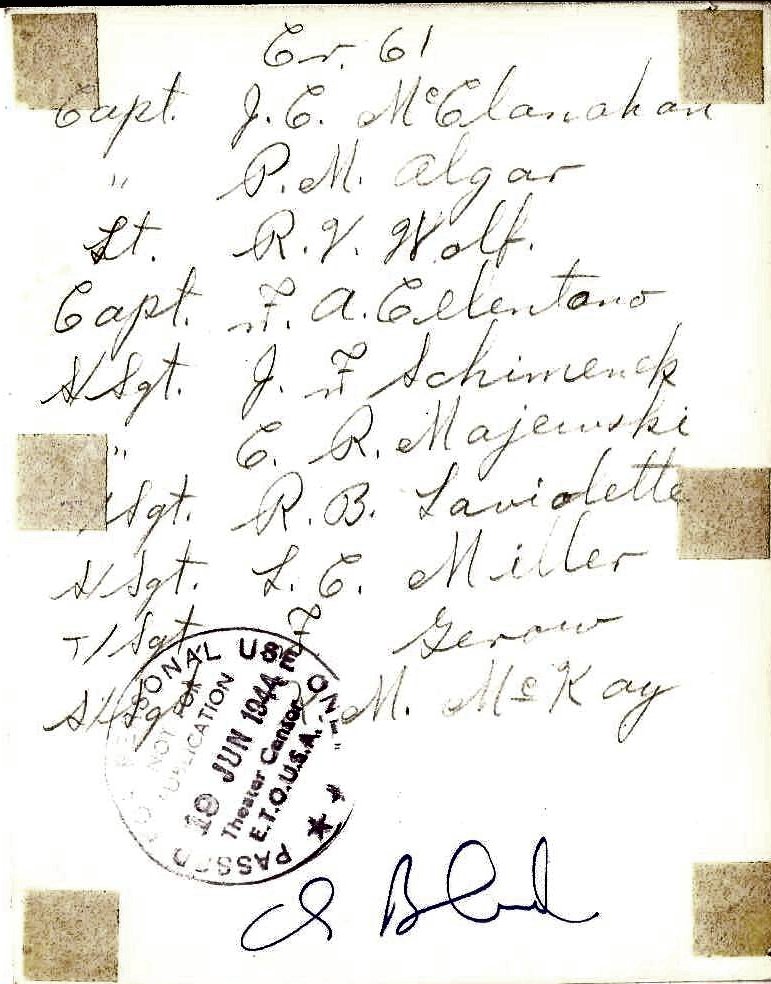 Cr. 61
Capt. J. C. McClanahan
" P. M. Algar
Lt. R. V. Wolf.
Capt. F. A. Cellentano
S/Sgt. J. F Schimenek
" C. R. Majewski
Sgt. R. B. Laviolette
S/Sgt. L. C. Miller
T/Sgt F Gerow
S/Sgt M. McKay
PASSED FOR PERSONAL USE ONLY
NOT FOR
PUBLICATION
19 JUN 1944
Theater Censor
E.T.O.U.S.A.